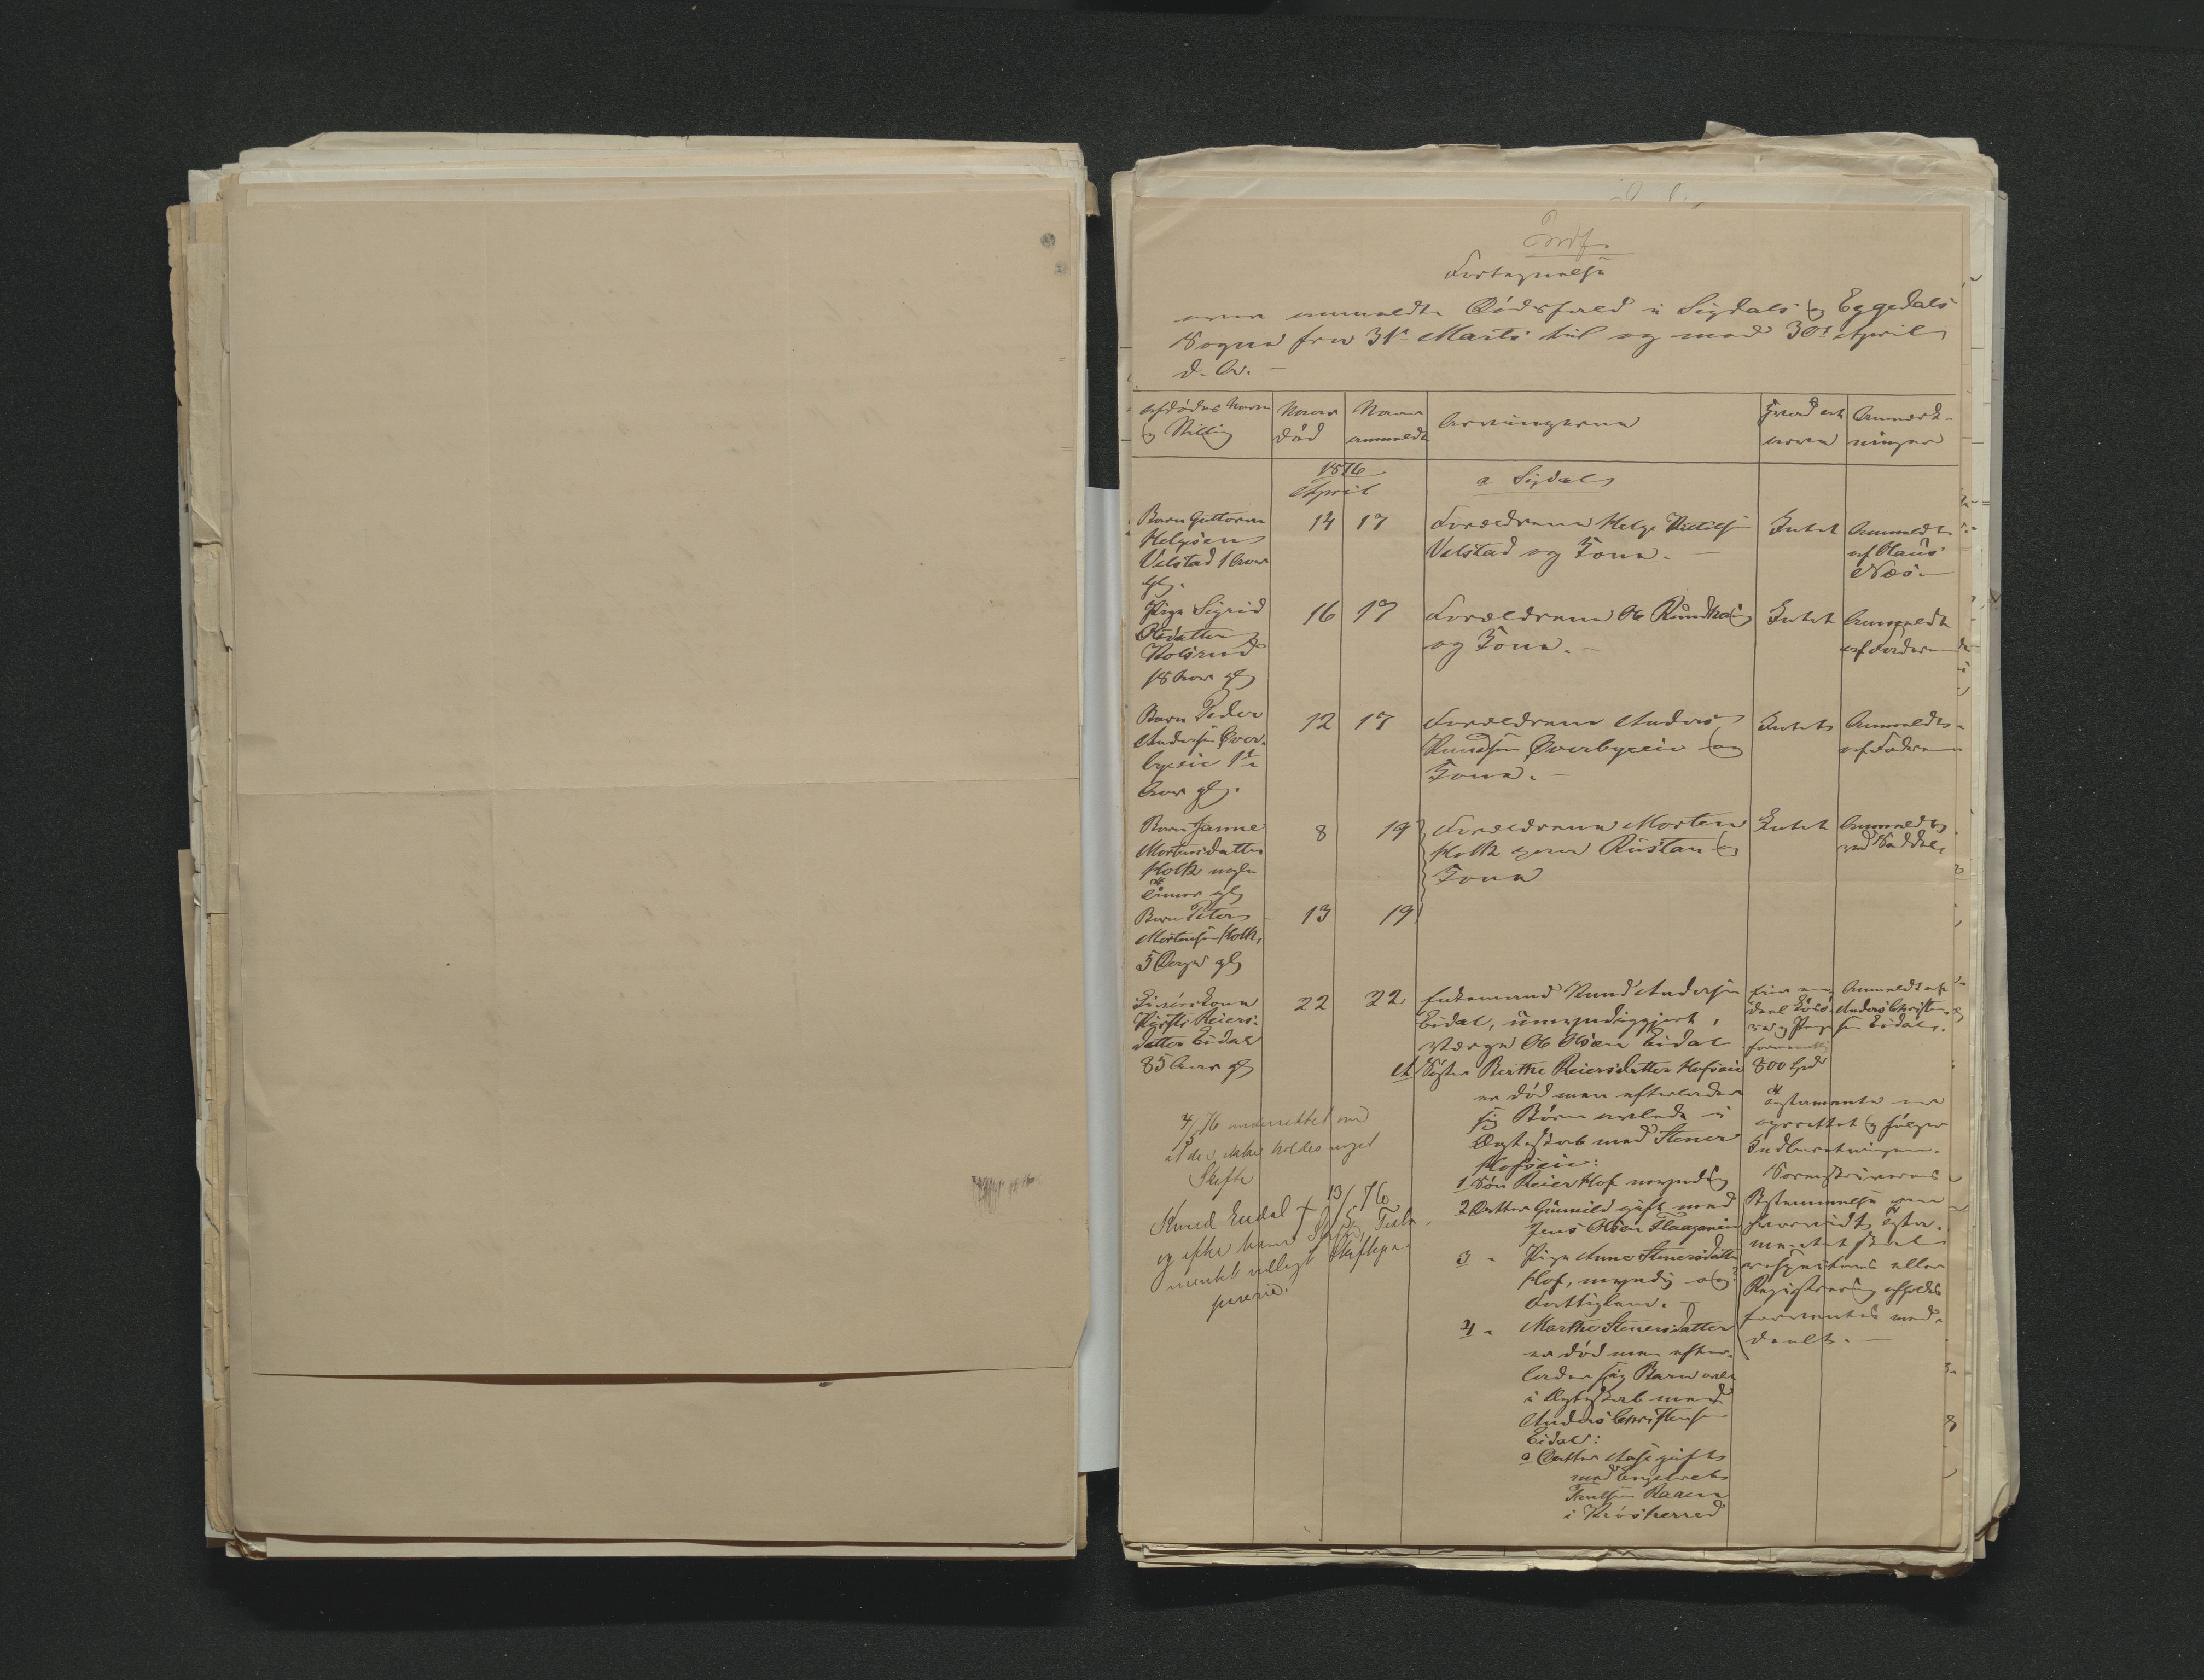 Indf.
Fortegnelse
over anmeldte Dødsfald i Sigdals og Eggedals
Sogne fra 31te Marts til og med 30te April
d. A. –
Afdødes Navn
og Stilling
Naar
død
Naar
anmeldt
Arvingerne
Hvad at
arve
Anmærk-
ninger
1876
April
a Sigdal
Barn Guttorm
Helgesen
Velstad 1 Aar
gl.
14 17
Forældrene Helge
Velstad og Kone. –
Intet
Anmeldt
af Claus
Næs. –
Pige Sigrid
Olsdatter
Kolsrud
18 Aar gl
16 17
Forældrene Ole
og Kone. –
Intet
Anmeldt
af Faderen
Barn Peder
Andersen Øver-
byeie 1½
Aar gl.
12 17
Forældrene Anders
Knudsen Øverbyeie og
Kone. –
Intet
Anmeldt
af Faderen
Barn Janne
Mortensdatter
Holk nogle
Timer gl
8 19
Forældrene Morten
Holk Rustan og
Kone
Intet
Anmeldt
ved
Barn Peter
Mortensen Holk,
5 Dage gl
13 19
Kone
Kirsti Reiers-
datter Eidal
85 Aar gl
22 22
Enkemand Knud Andersen
Eidal, umyndiggjort,
Værge Ole Olsen Eidal
A Søster Berthe Reiersdatter Hofseie
er død men efterlader
sig Børn avlede i
Ægteskab med Stener
Hofseie:
1 Søn Reier Hof myndig
2 Datter Gunnild gift med
Jens Olsen Flaageneie
3 " Pige Anne Stenersdatter
Hof, myndig og
Fattiglem. –
4 " Marthe Stenersdatter
er død men efter-
lader sig Barn avlet
i Ægteskab med
Anders Christensen
Eidal:
a Datter Aase gift
med Engebret
Raaen
i Krødsherred
deel Løsø-
re og Penge
formentlig
800 Spd
Anmeldt af
Anders Christen-
sen Eidal.
Testamente er
oprettet og følger
Indberetningen.
Sorenskriverens
Bestemmelse om
hvorvidt Testa-
mentet skal
respekteres eller
Registrering afholdes
forventes med-
deelt. –
4/5 76 underrettet om
at der ikke holdes noget
Skifte
Knud Eidal † 13/5 76
og efter ham Testa-
mentet vedlagt Skiftepa-
pirerne.